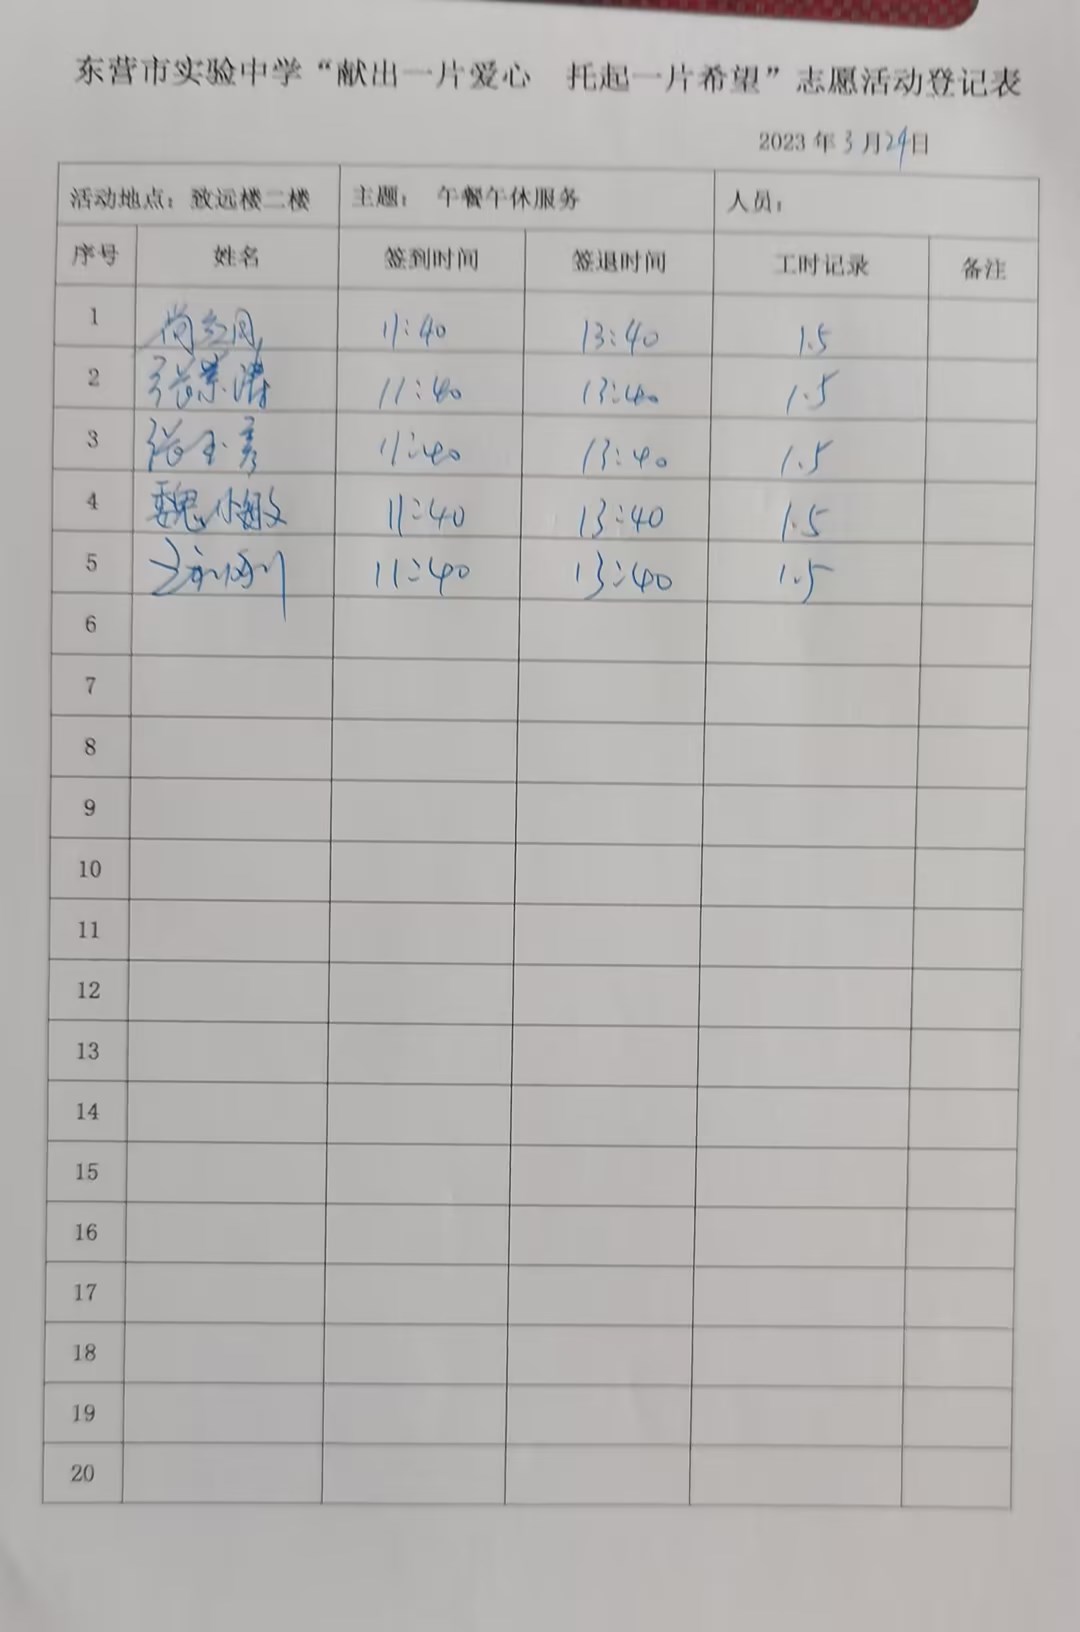 东营市实验中学“献出一片爱心 托起一片希望”志愿活动登记表
2023 年 3 月 24 日
活动地点：致远楼二楼 主题： 午餐午休服务 人员：
序号 姓名 签到时间 签退时间 工时记录 备注
1 11:40 13:40 1.5
2 张景涛 11:40 13:40 1.5
3 张玉秀 11:40 13:40 1.5
4 魏小敏 11:40 13:40 1.5
5 11:40 13:40 1.5
6
7
8
9
10
11
12
13
14
15
16
17
18
19
20